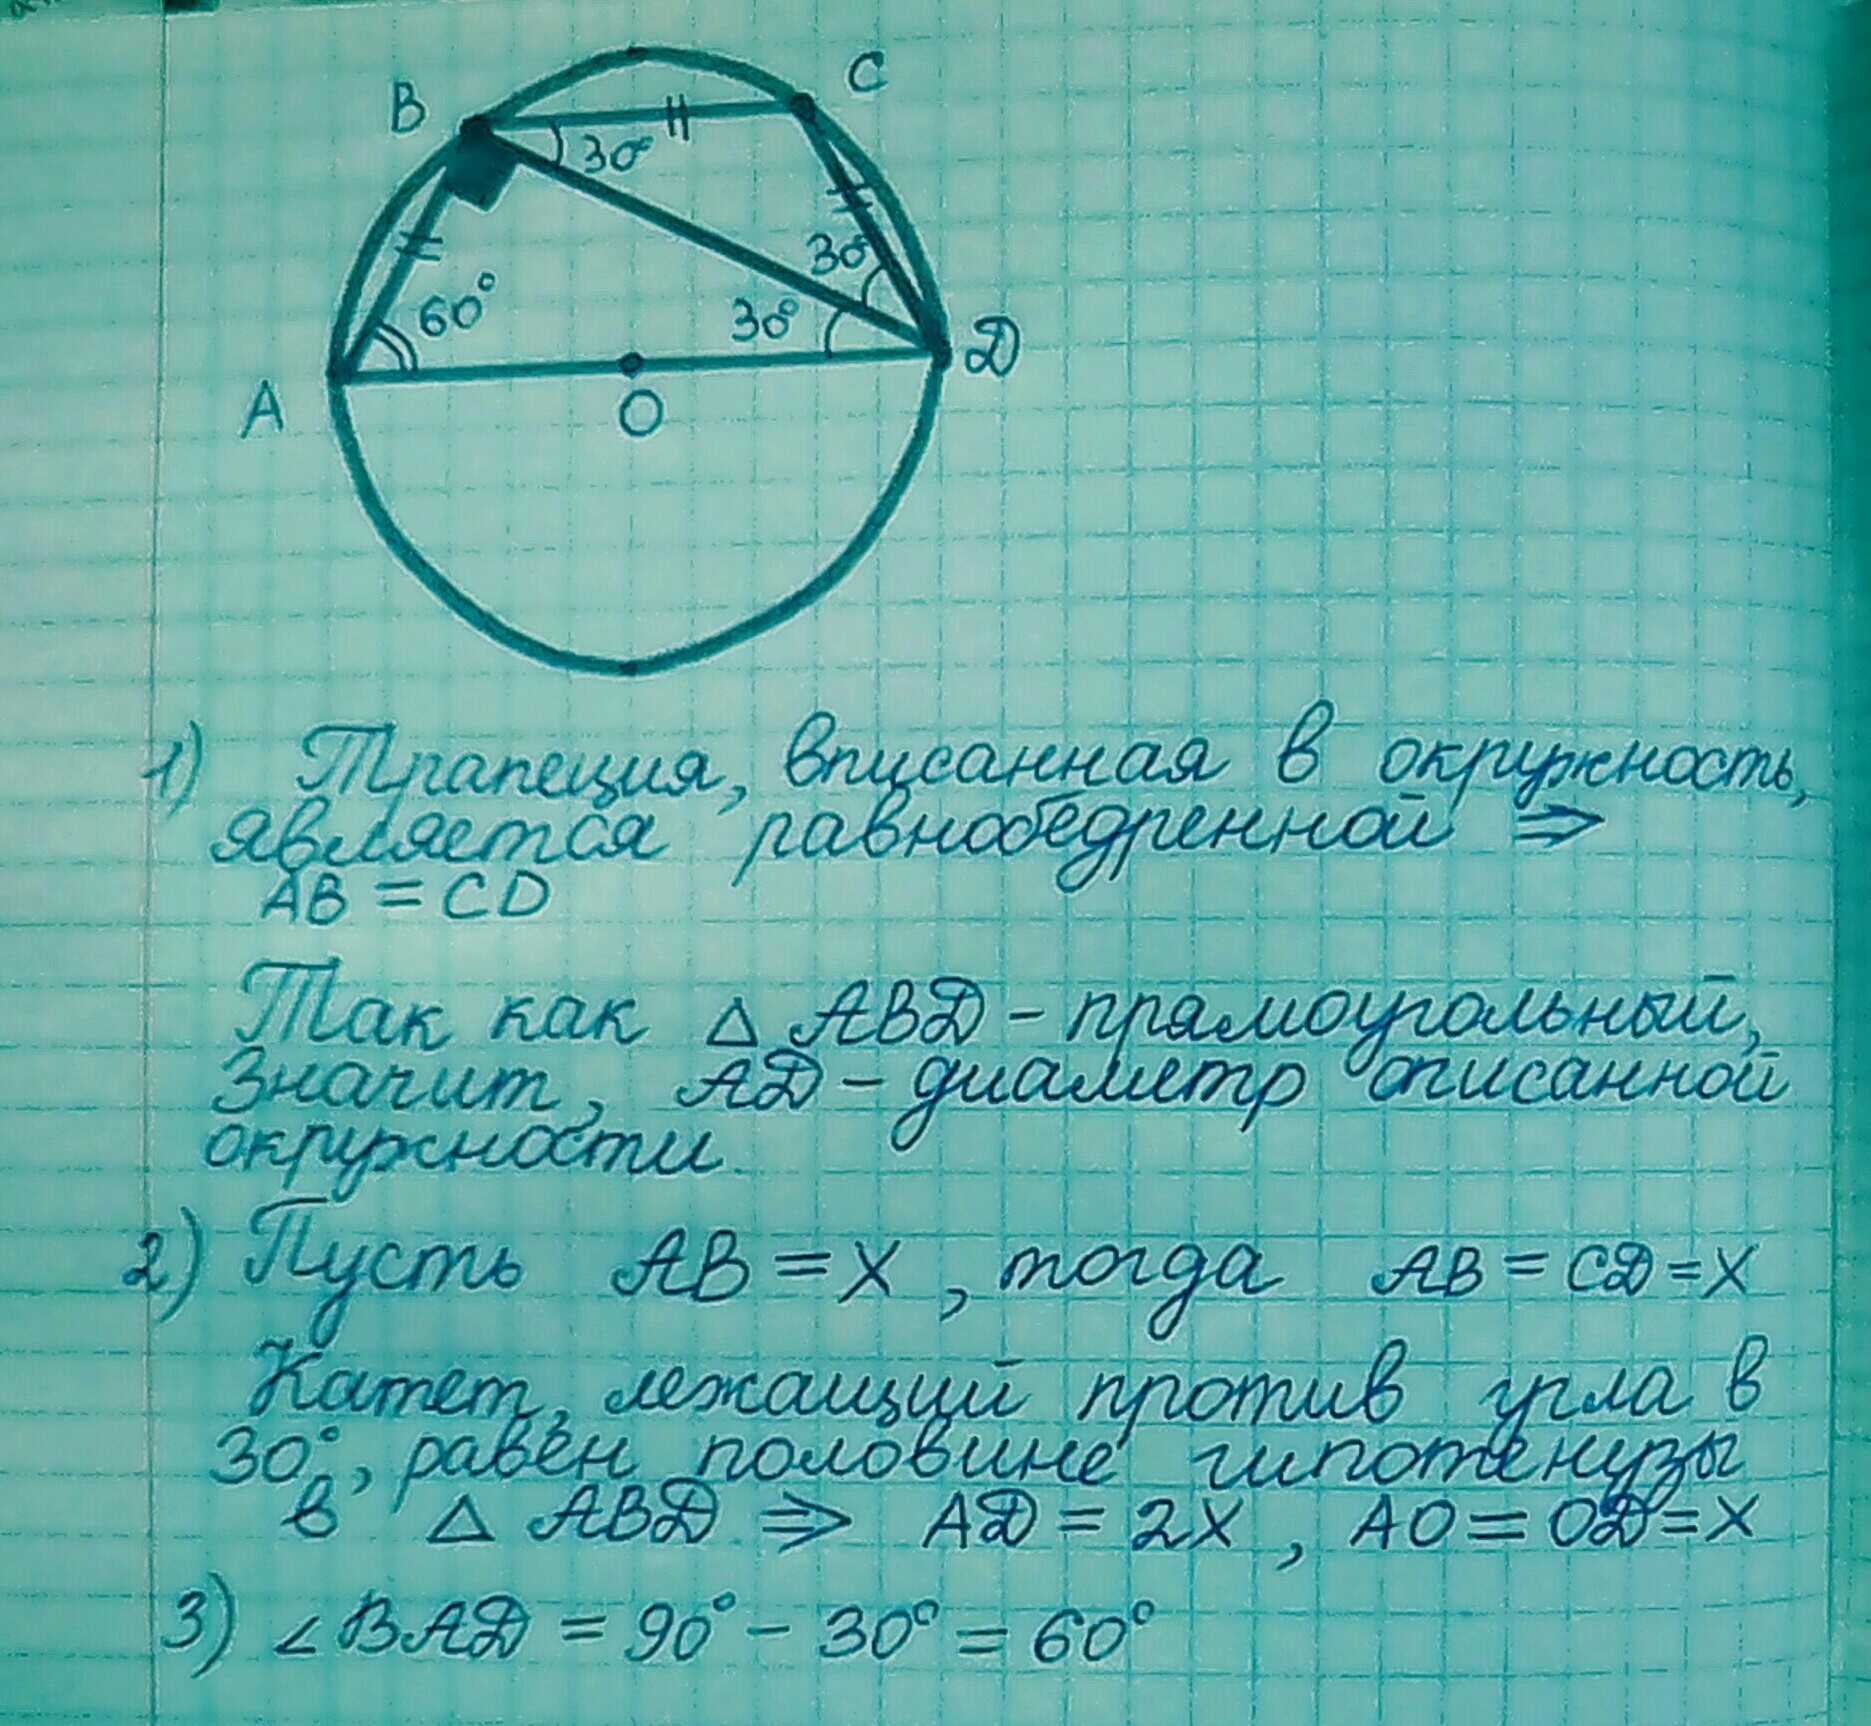 B
C
30°
30°
60°
30°
A
O
D
1) Трапеция, вписанная в окружность,
является равнобедренной ⇒
AB = CD
Так как △ ABD – прямоугольный,
значит, AD – диаметр описанной
окружности
2) Пусть AB = X, тогда AB = CD = X
Катет, лежащий против угла в
30°, равен половине гипотенузы
в △ ABD ⇒ AD = 2X, AO = OD = X
3) ∠BAD = 90° – 30° = 60°